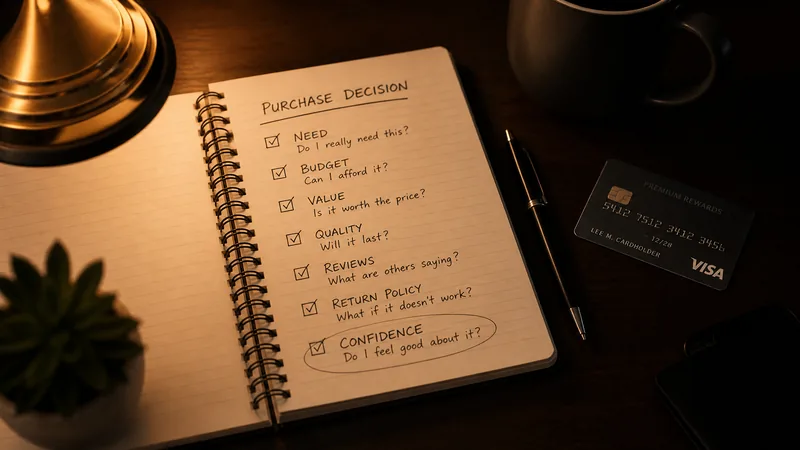 PURCHASE DECISION
NEED
Do I really need this?
BUDGET
Can I afford it?
VALUE
Is it worth the price?
QUALITY
Will it last?
REVIEWS
What are others saying?
RETURN POLICY
What if it doesn't work?
CONFIDENCE
Do I feel good about it?
PREMIUM REWARDS
5412 7512 3412 3456
12/28
LEE M. CARDHOLDER
VISA